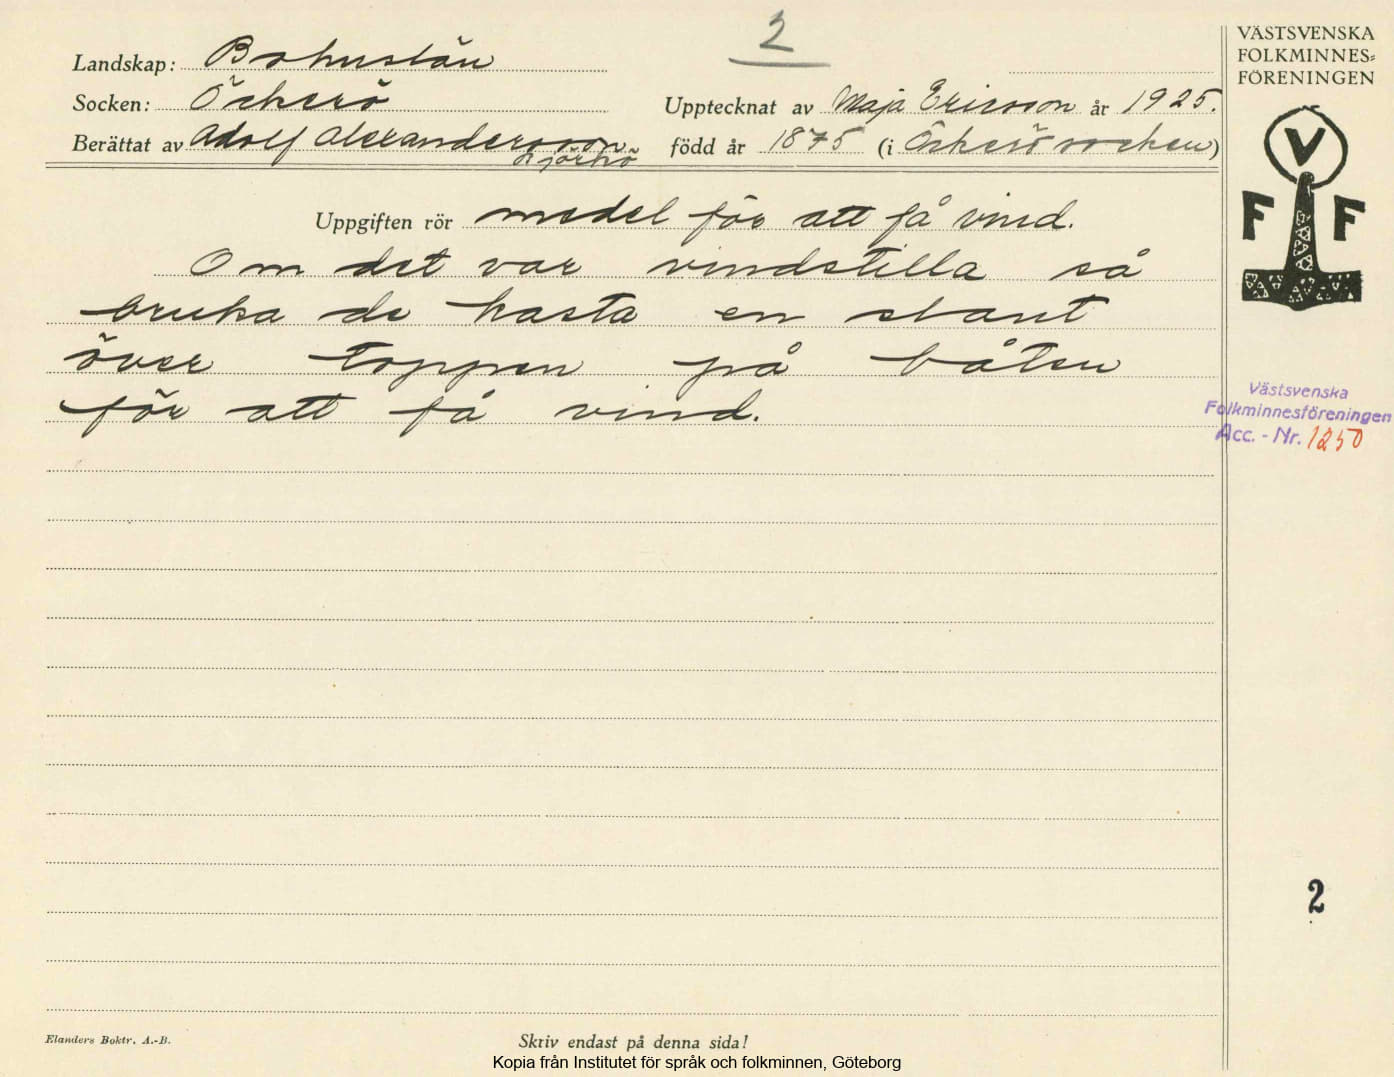 2
Landskap: Bohuslän
Socken: Öckerö
Upptecknat av Maja Ericsson år 1925.
Berättat av Adolf Alexandersson
Björkö
född år 1875 (i Öckerö socken)
VÄSTSVENSKA
FOLKMINNES=
FÖRENINGEN
V
F F
Uppgiften rör medel för att få vind.
Om det var vindstilla så
bruka de kasta en slant
över toppen på båten
för att få vind.
Västsvenska
Folkminnesföreningen
Acc. - Nr. 1250
2
Elanders Boktr. A.-B.
Skriv endast på denna sida!
Kopia från Institutet för språk och folkminnen, Göteborg